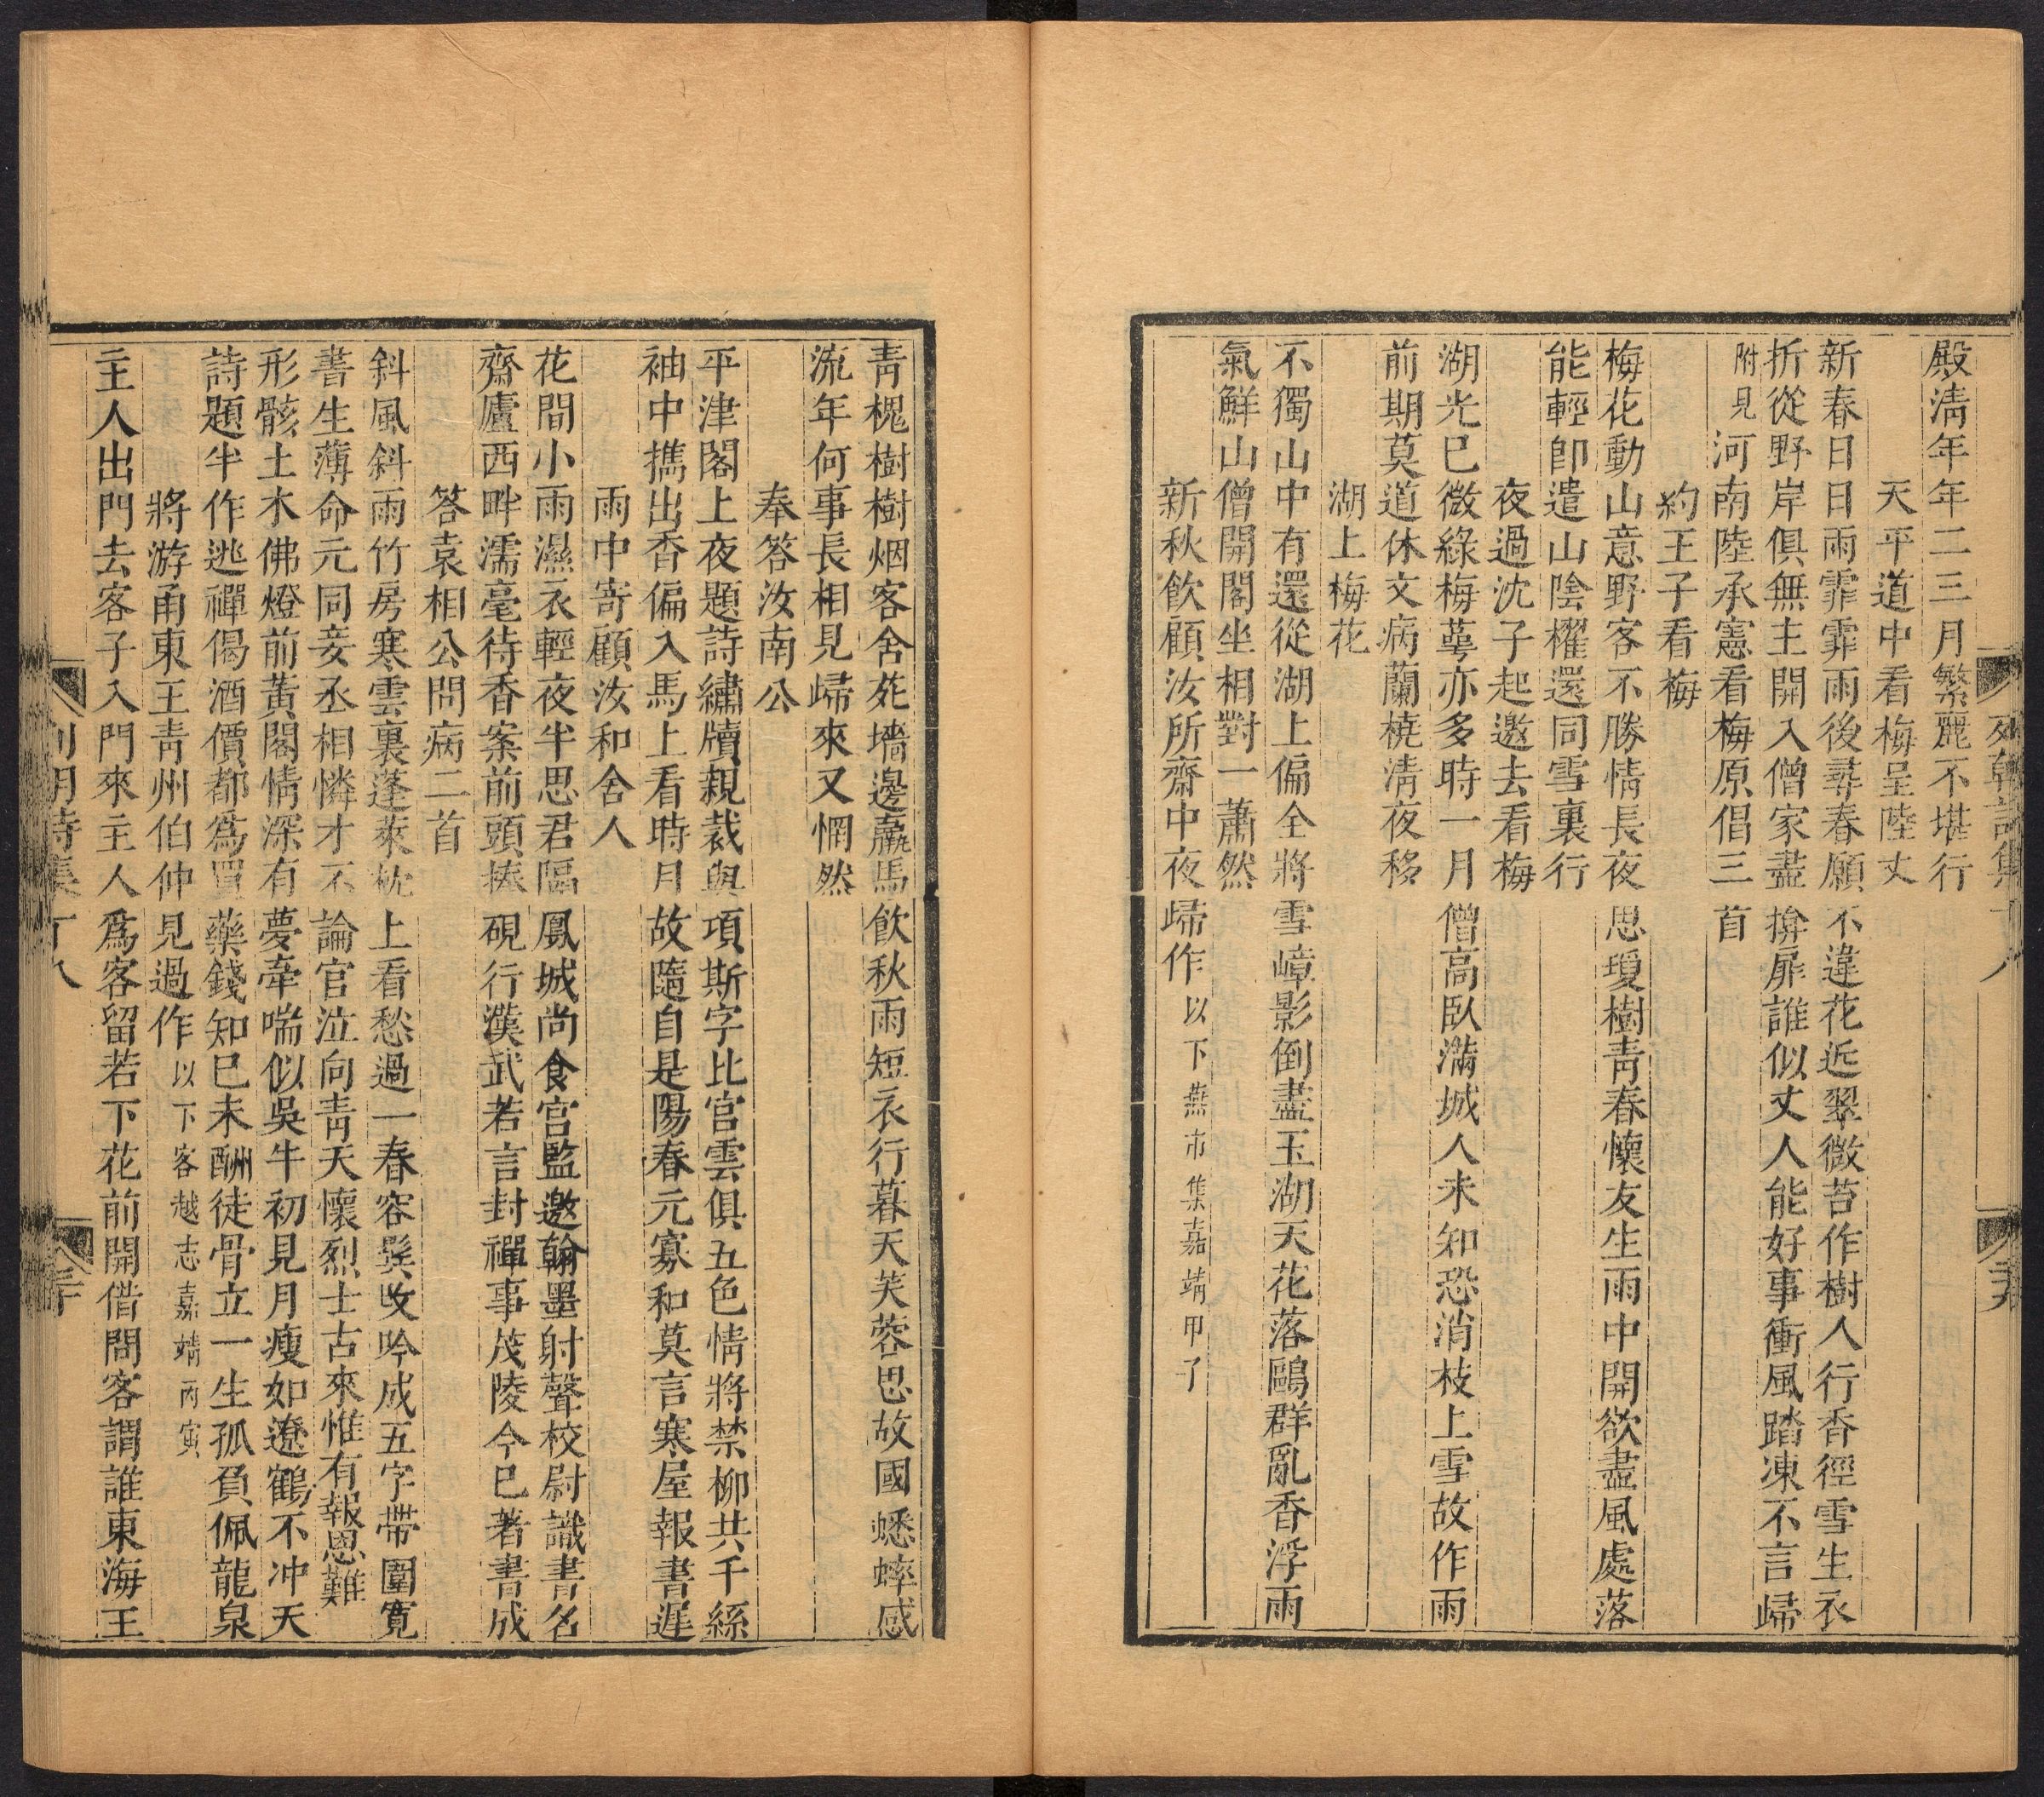 殿淸年年二三月繁麗不堪行
天平道中看梅呈陸丈
新春日日雨霏霏雨後尋春願不違花近翠微苔作樹人行香徑雪生衣
折從野岸俱無主開入僧家盡掩扉誰似丈人能好事衝風踏凍不言歸
附見河南陸承憲看梅原倡三首
約王子看梅
梅花動山意野客不勝情長夜思瓊樹靑春懷友生雨中開欲盡風處落
能輕卽遣山陰櫂還同雪裏行
夜過沈子起邀去看梅
湖光已微綠梅萼亦多時一月僧高臥滿城人未知恐消枝上雪故作雨
前期莫道休文病蘭橈淸夜移
湖上梅花
不獨山中有還從湖上偏全將雪嶂影倒盡玉湖天花落鷗群亂香浮雨
氣鮮山僧開閣坐相對一蕭然
新秋飮顧汝所齋中夜歸作以下燕市集嘉靖甲子
靑槐樹樹烟客舍苑墻邊羸馬飮秋雨短衣行暮天芙蓉思故國蟋蟀感
流年何事長相見歸來又惘然
奉答汝南公
平津閣上夜題詩繡牘親裁與項斯字比官雲俱五色情將禁柳共千絲
袖中擕出香偏入馬上看時月故隨自是陽春元寡和莫言寒屋報書遲
雨中寄顧汝和舍人
花間小雨濕衣輕夜半思君隔鳳城尚食宮監邀翰墨射聲校尉識書名
齋廬西畔濡毫待香案前頭捧硯行漢武若言封禪事茂陵今已著書成
答袁相公問病二首
斜風斜雨竹房寒雲裏蓬萊枕上看愁過一春容鬂改吟成五字帶圍寬
書生薄命元同妾丞相憐才不論官泣向靑天懷烈士古來惟有報恩難
形骸土木佛燈前黃閣情深有夢牽喘似吳牛初見月瘦如遼鶴不冲天
詩題半作逃禪偈酒價都爲買藥錢知已未酬徒骨立一生孤負佩龍泉
將游甬東王靑州伯仲見過作以下客越志嘉靖丙寅
主人出門去客子入門來主人爲客留若下花前開借問客謂誰東海王